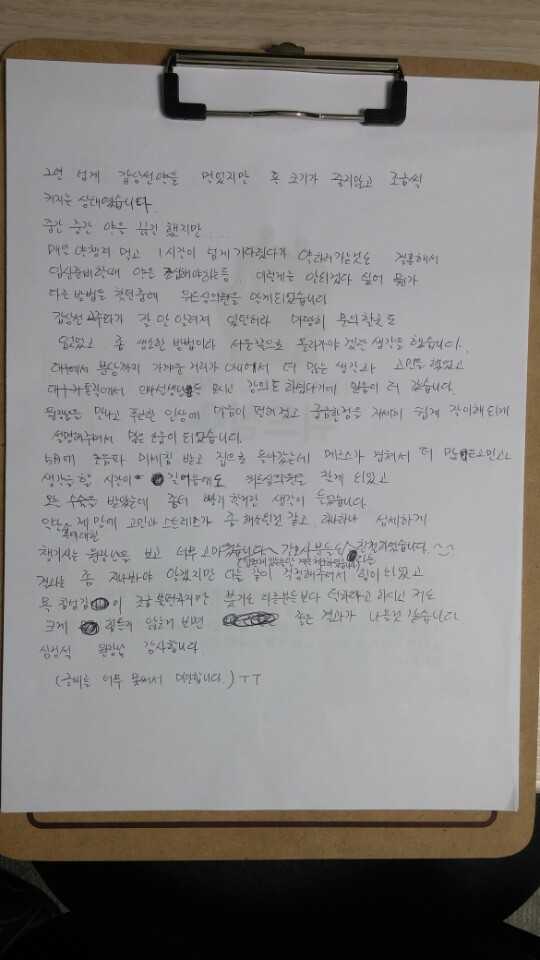 2년 넘게 갑상선약을 먹었지만 혹 크기가 줄지않고 조금씩
커지는 상태였습니다.
중간 중간 약은 끊긴 했지만....
매일 약챙겨 먹고 1시간이 넘게 기다렸다가 약하러가는것도 결혼해서
임신준비할때 약은 조심해야하는등... 이렇게는 안되겠다 싶어 뭔가
다른 방법을 찾던중에 위드심의원을 알게되었습니다
갑상선 고주파가 잘 안 알려져 있던터라 마땅히 문의할곳도
없었고 좀 생소한 방법이라 서울쪽으로 올라가야 겠단 생각을 했습니다.
대구에서 분당까지 가까운 거리가 아니여서 더 많은 생각과 고민을 했었고
대구가톨릭에서 의사선생님들 모시고 강의도 하셨다기에 믿음이 더 갔습니다.
원장님을 만나고 푸근한 인상에 마음이 편해졌고 궁금한점을 자세히 쉽게 잘이해되게
설명해주셔서 많은 도움이 되었습니다.
5月에 초음파 미세침 받고 집으로 돌아갔는데 메르스가 겹쳐서 더 많은고민과
생각을 할 시간이 길어짐에도 위드심의원을 찾게 되었고
오늘 수술을 받았는데 좀더 빨리 할걸이란 생각이 들었습니다.
약간 제 맘에 고민과 스트레스가 좀 해소된것 같고 하나하나 섬세하게
혹에대한
챙기시는 원장님을 보고 너무 고마웠습니다 간호사분들도 친절하셨습니다. ^^
결과는 좀 지나봐야 알겠지만 다들 같이 걱정해주셔서 힘이 되었고
목 이 조금 불편하지만 붓기도 다른분들보다 덜하다고 하시고 저도
크게 힘든지 않은거 보면 좋은 결과가 나올것 같습니다.
심정석 원장님 감사합니다.
(글씨를 너무 못써서 미안합니다.) ㅜㅜ